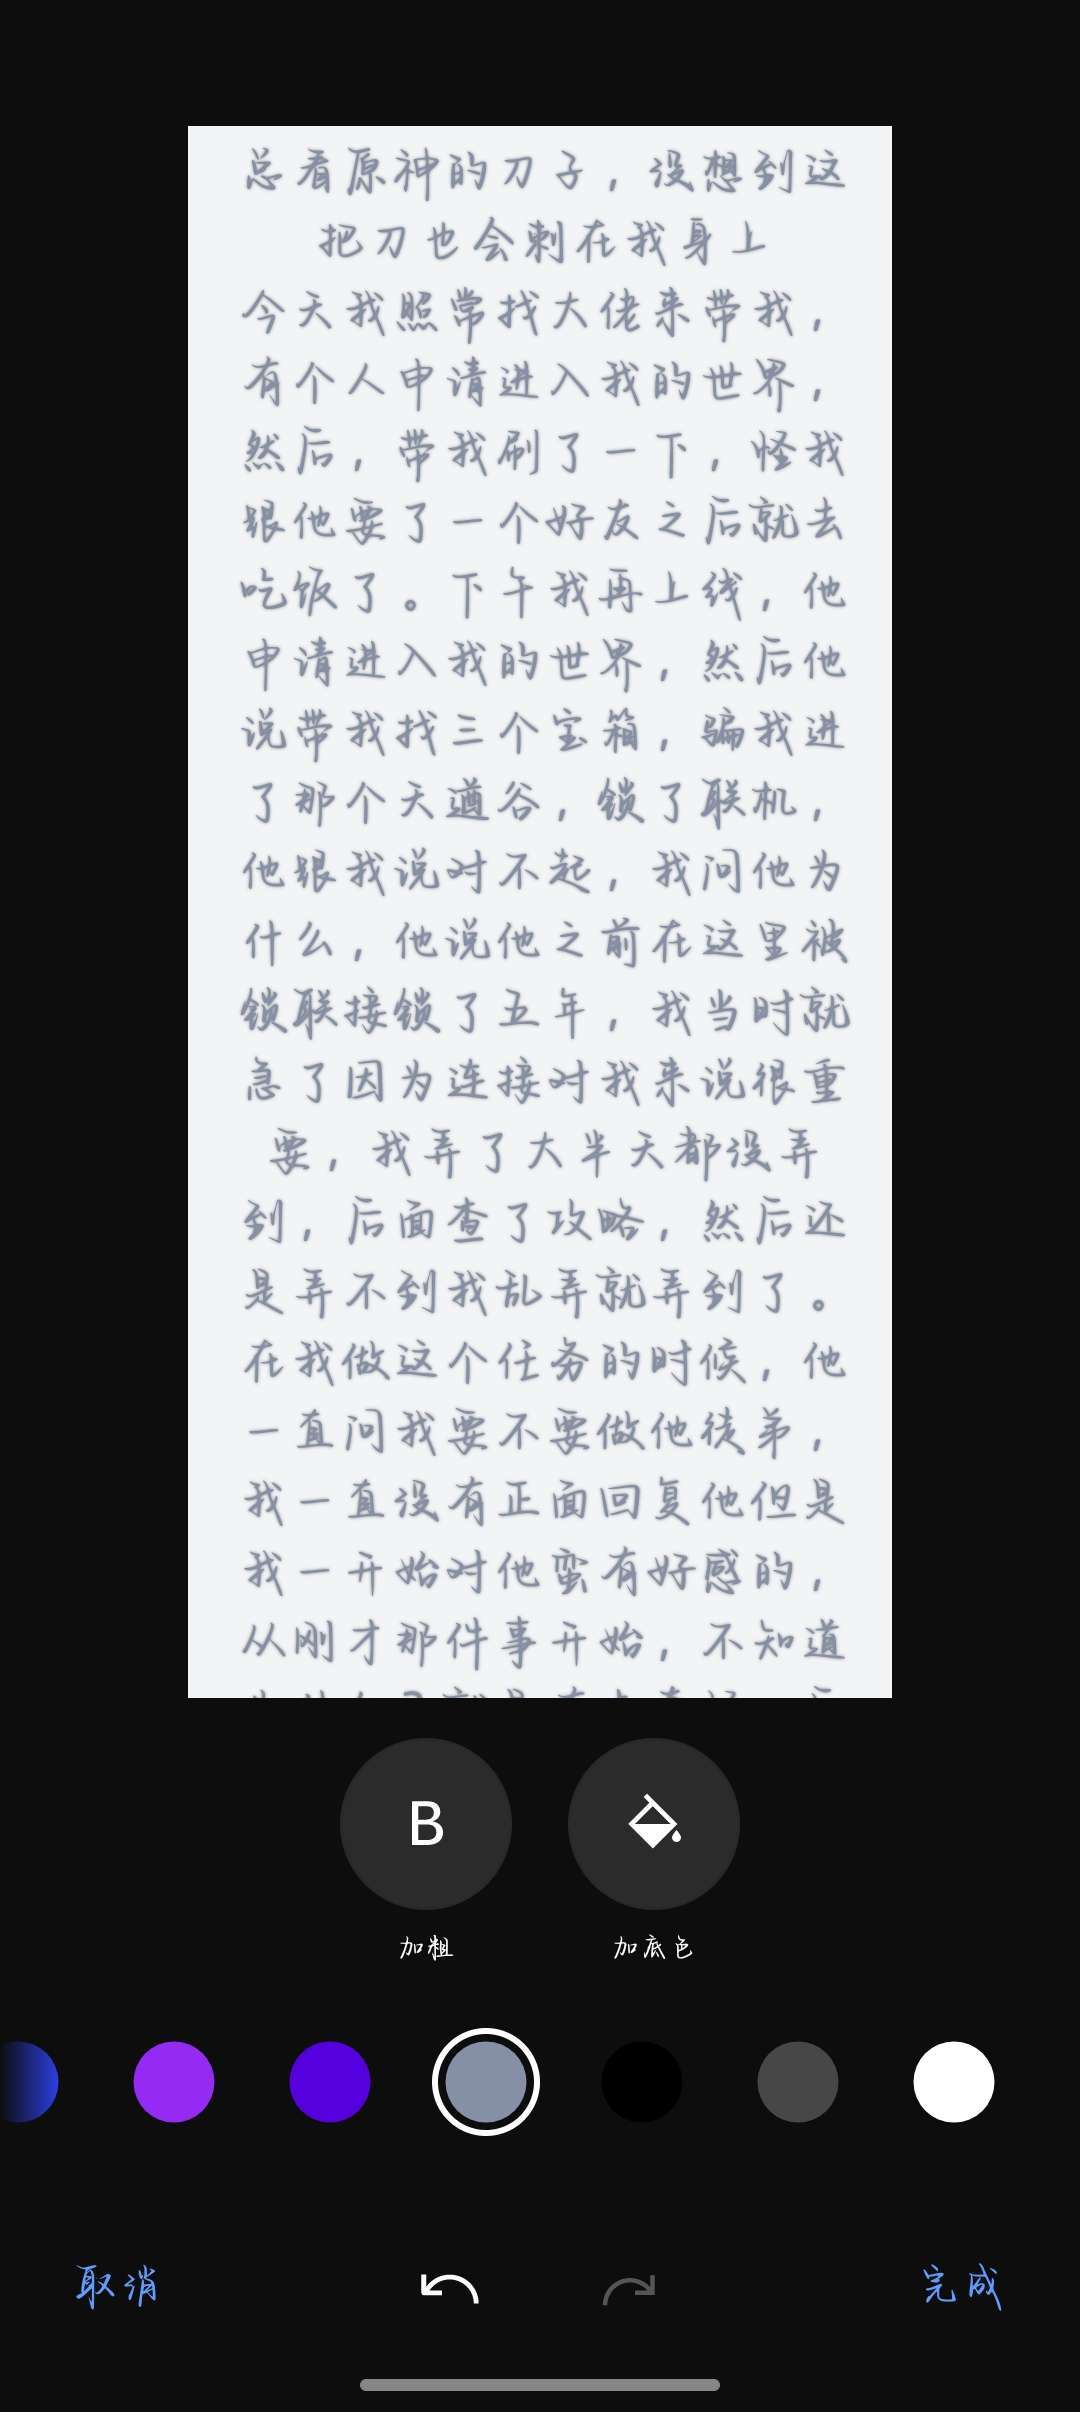 总看原神的刀子，没想到这
把刀也会刺在我身上
今天我照常找大佬来带我，
有个人申请进入我的世界，
然后，带我刷了一下，怪我
跟他要了一个好友之后就去
吃饭了。下午我再上线，他
申请进入我的世界，然后他
说带我找三个宝箱，骗我进
了那个天遒谷，锁了联机，
他跟我说对不起，我问他为
什么，他说他之前在这里被
锁联接锁了五年，我当时就
急了因为连接对我来说很重
要，我弄了大半天都没弄
到，后面查了攻略，然后还
是弄不到我乱弄就弄到了。
在我做这个任务的时候，他
一直问我要不要做他徒弟，
我一直没有正面回复他但是
我一开始对他蛮有好感的，
从刚才那件事开始，不知道
B
加粗
加底色
取消
完成